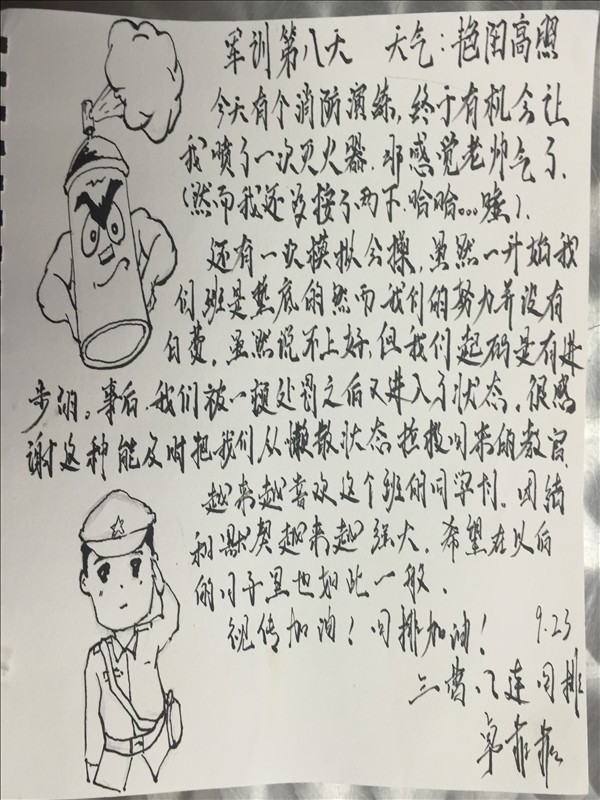 军训第八天 天气：艳阳高照
今天有个消防演练,终于有机会让
我喷了一次灭火器.那感觉老帅气了.
(然而我还没按了两下.哈哈...嘘).
还有一次模拟会操,虽然一开始我
们班是垫底的然而我们的努力并没有
白费,虽然说不上好,但我们起码是有进
步的。事后,我们被一梗处罚之后又进入了状态,很感
谢这种能及时把我们从懒散状态拉拔回来的教官
越来越喜欢这个班的同学们.团结
和默契越来越强大.希望在以后
的日子里也如此一般.
视传加油！四排加油！ 9.23
三营 八连 四排